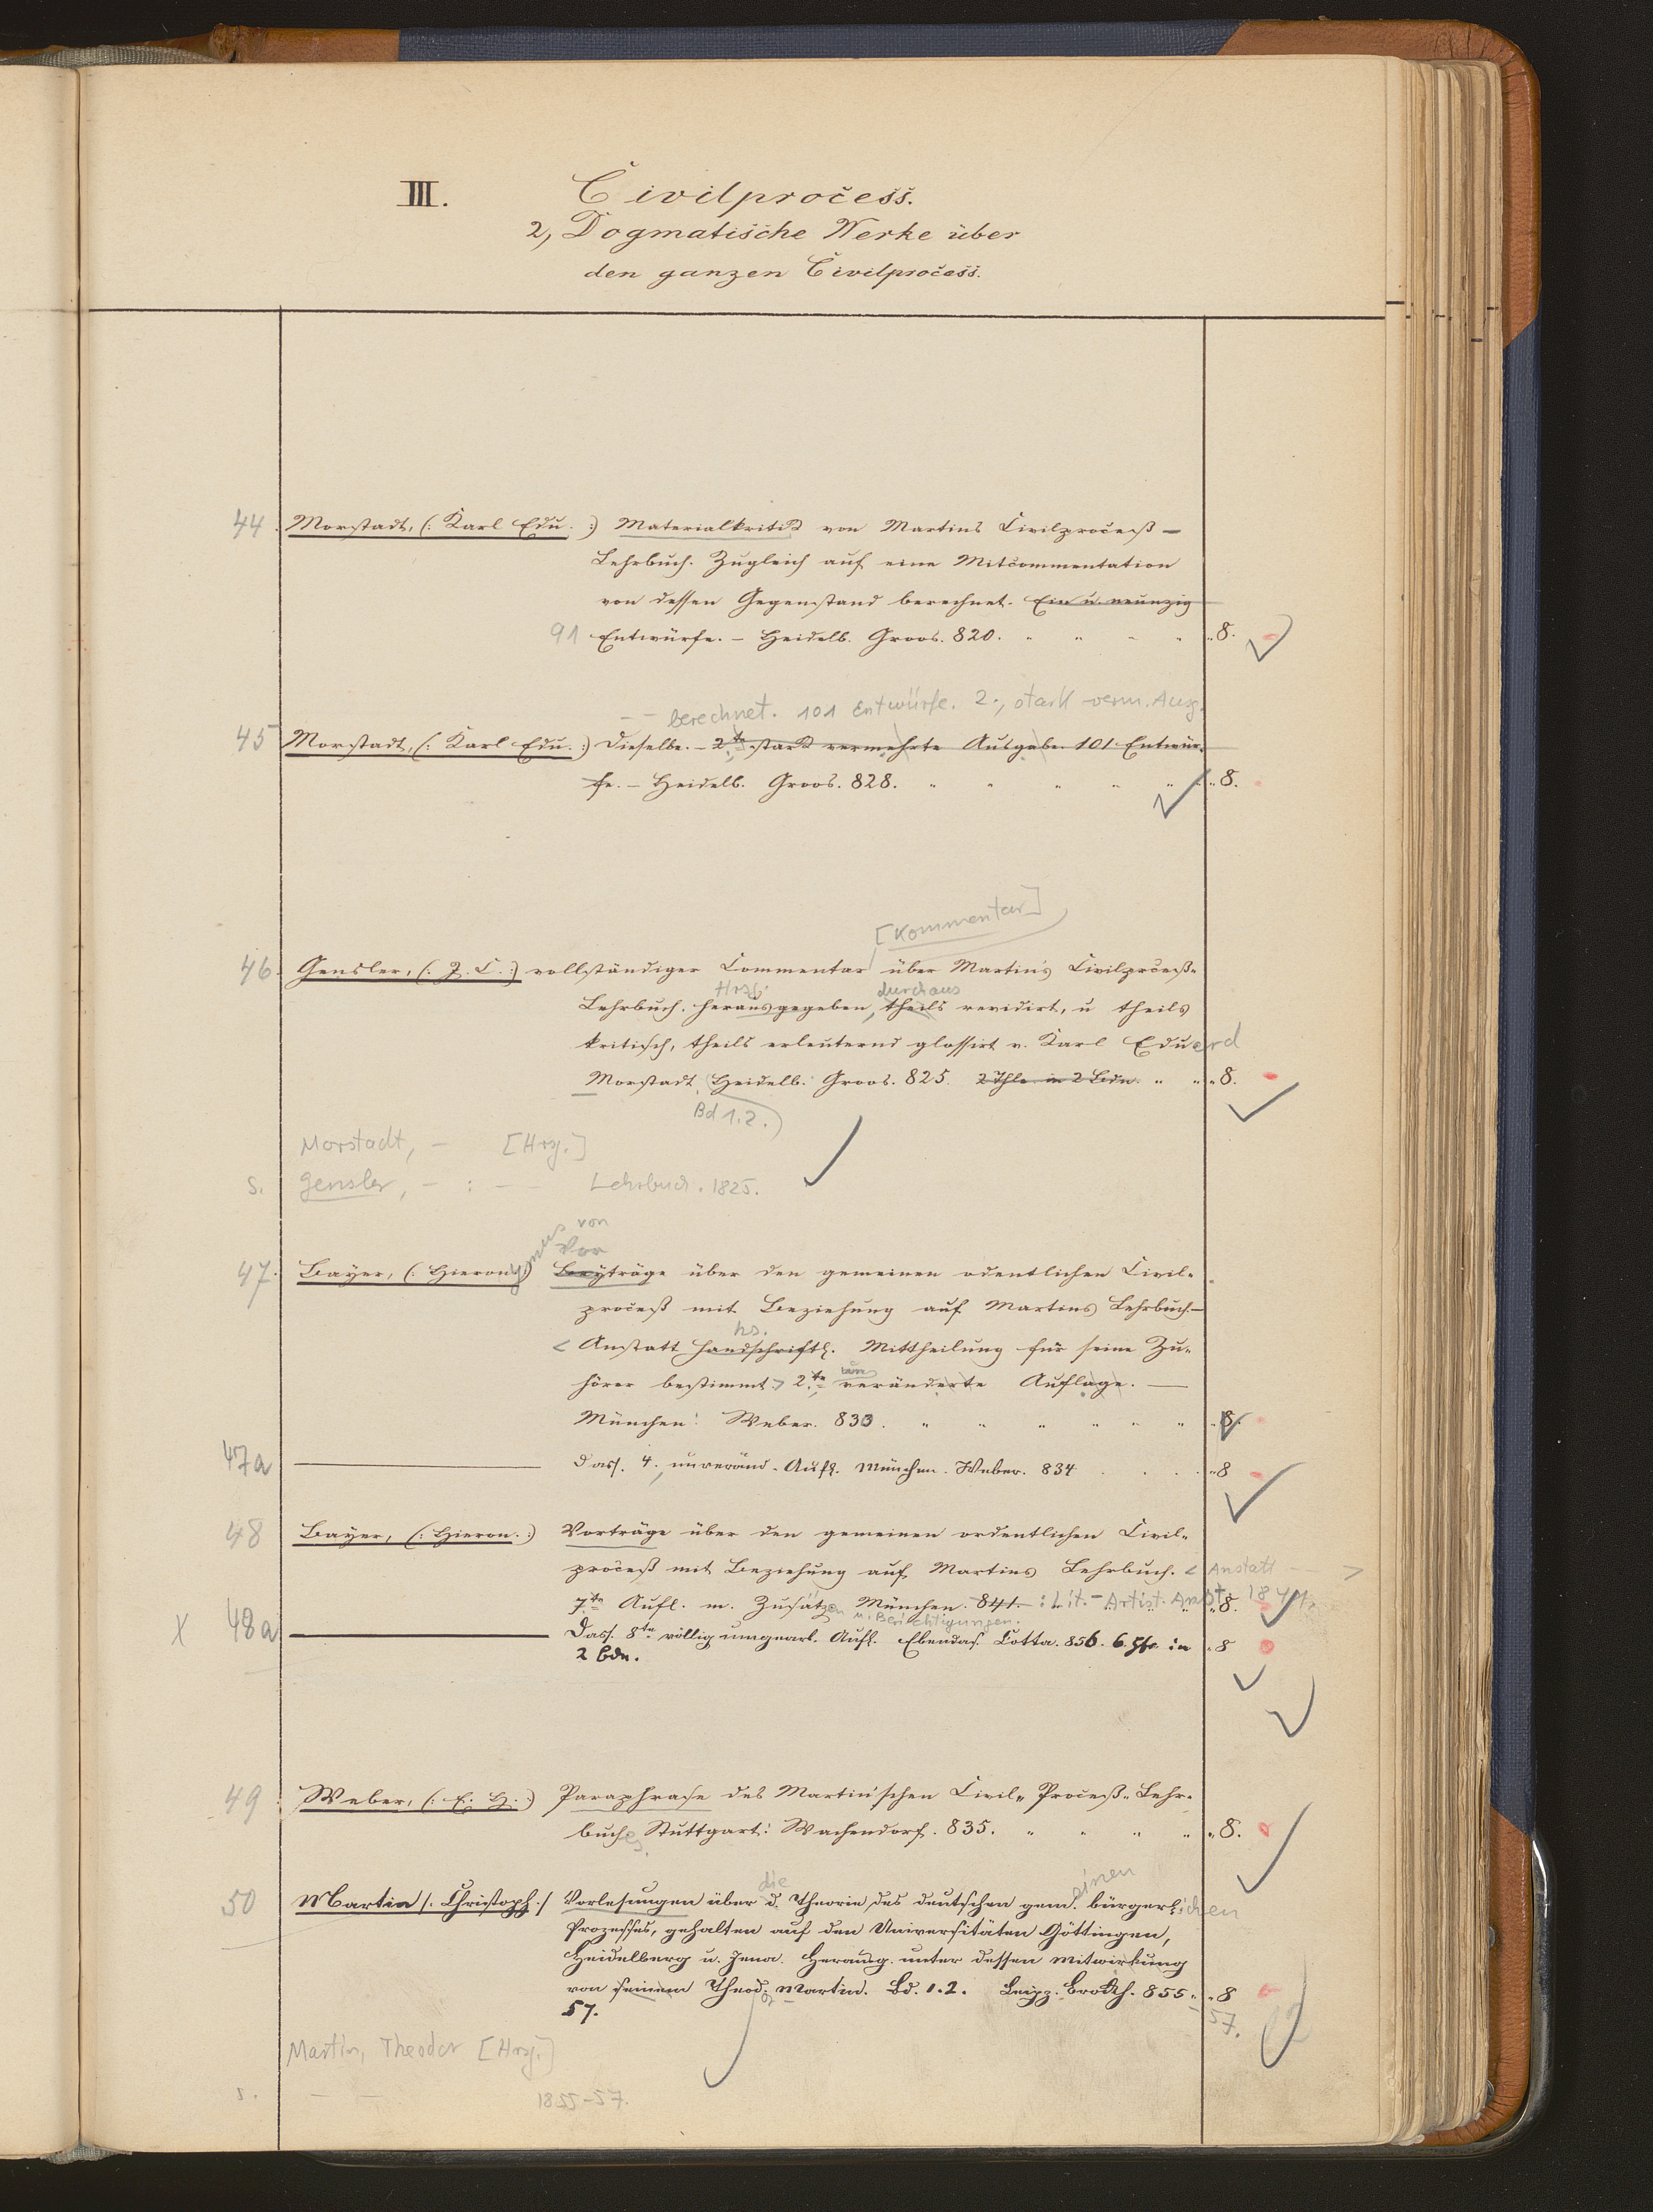 III. Civilprocess.
2, Dogmatische Werke über
den ganzen Civilprocess.
44. Morstadt, (: Karl Edu. :) Materialkritik von Martins Civilproceß-
Lehrbuch. Zugleich auf eine Mitcommentation
von dessen Gegenstand berechnet. Ein u. neunzig
91 Entwürfe. – Heidelb. Groos. 820. " " " " "8.
-- berechnet. 101 Entwürfe. 2., stark verm. Ausg.
45 Morstadt, (: Karl Edu. :) Dieselbe. – 2te stark vermehrte Ausgabe 101 Entwür-
fe. – Heidelb. Groos. 828. " " " " " "8.
[Kommentar]
46. Gensler, (: J. C. :) vollständiger Commentar über Martin's Civilproceß-
Hrsg. durchaus
Lehrbuch. herausgegeben, theils revidirt, u theils
kritisch, theils erleuternd glossirt v. Karl Eduard
Morstadt. Heidelb. Groos. 825. 2 Thle in 2 Bdn. " " "8.
Bd 1.2.)
Morstadt, – [Hrsg.]
s. Gensler, – : –– Lehrbuch. 1825.
von
Vor
47. Bayer, (: Hieronymus) Beyträge über den gemeinen odentlichen Civil-
proceß mit Beziehung auf Martins Lehrbuch.–
hs.
< Anstatt handschriftl. Mittheilung für seine Zu-
hörer bestimmt > 2.te veränderte Auflage. –
München: Weber. 830. " " " " " " "8.
47a Dass. 4., unveränd. Aufl. München. Weber. 834 . . . . "8
48 Bayer, (: Hieron. :) Vorträge über den gemeinen ordentlichen Civil-
proceß mit Beziehung auf Martins Lehrbuch. < Anstatt -- >
7.te Aufl. m. Zusätzen München. 841. : Lit.-Artist. Anst. 1841. "8.
u. Berichtigungen.
X 48a Dass. 8te völlig umgearb. Aufl. Ebendas. Cotta. 856. 6. Hfte in "8
2 Bdn.
49 Weber, (: E. H. :) Paraphrase des Martin'schen Civil-Proceß-Lehr-
buches. Stuttgart: Wachendorf. 835. " " " " "8.
die einen
50 Martin /: Christoph :/ Vorlesungen über d. Theorie des deutschen gem. bürgerlichen
Prozesses, gehalten auf den Universitäten Göttingen,
Heidelberg u. Jena. Herausg. unter dessen Mitwirkung
von seinem Theod. Martin. Bd. 1.2. Leipz. Brockh. 855- "8
57. 57.
Martin, Theodor [Hrsg.]
s. – – 1855-57.